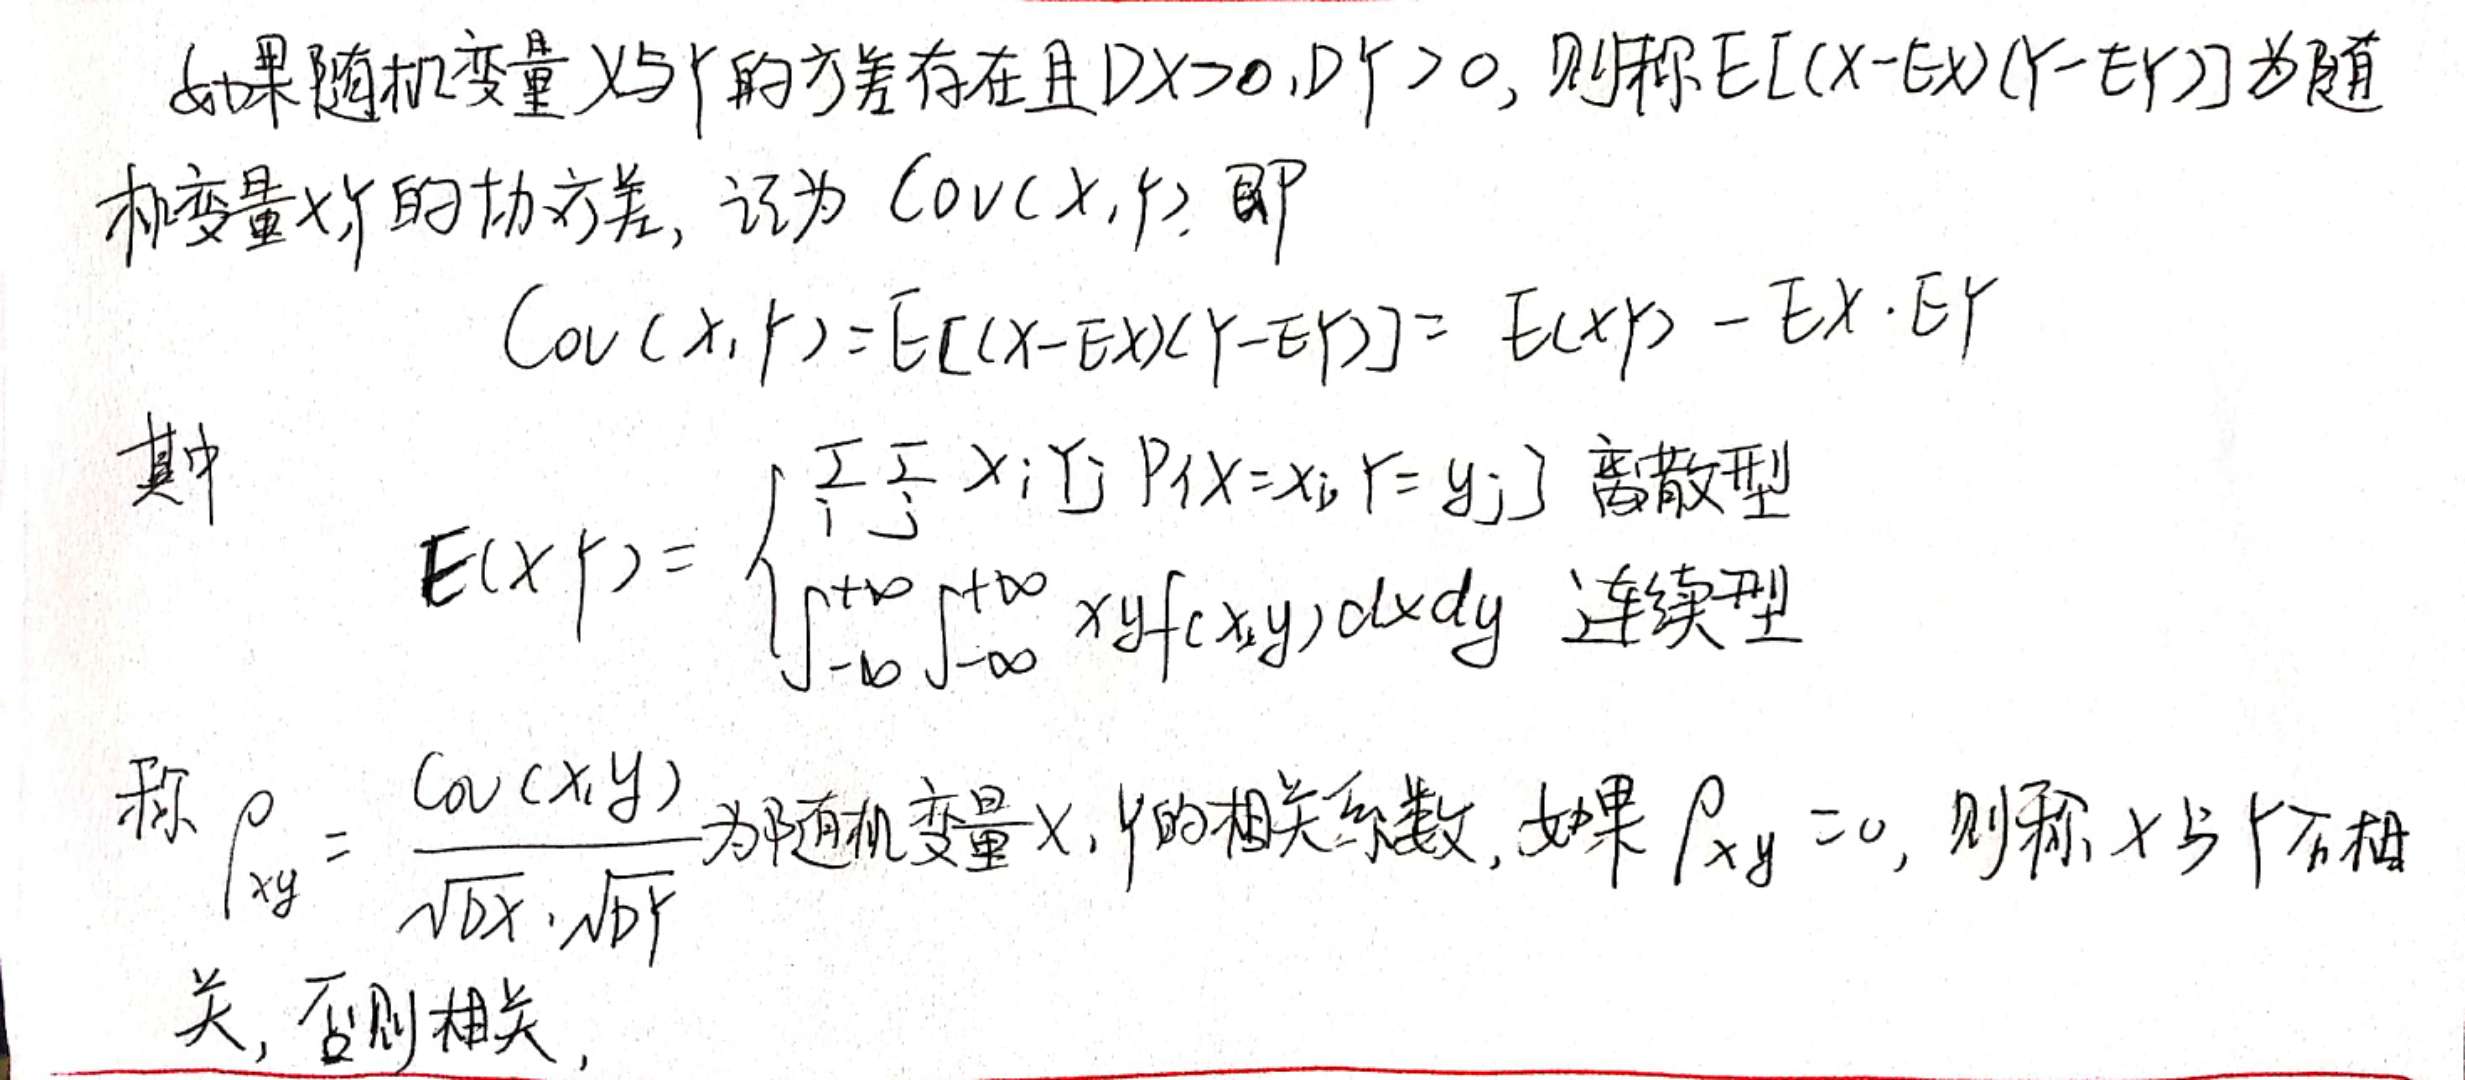 如果随机变量X与Y的方差存在且DX>0,DY>0,则称E[(X-EX)(Y-EY)]为随
机变量X,Y的协方差,记为 Cov(X,Y),即
Cov(X,Y)=E[(X-EX)(Y-EY)]= E(XY) - EX·EY
其中
E(XY)= { ∑i ∑j xiYj P{X=xi,Y=yj} 离散型
∫-∞+∞ ∫-∞+∞ xyf(x,y)dxdy 连续型
称 ρxy = Cov(X,y) / √DX·√DY 为随机变量X,Y的相关系数,如果 ρxy =0,则称X与Y不相
关,否则相关,